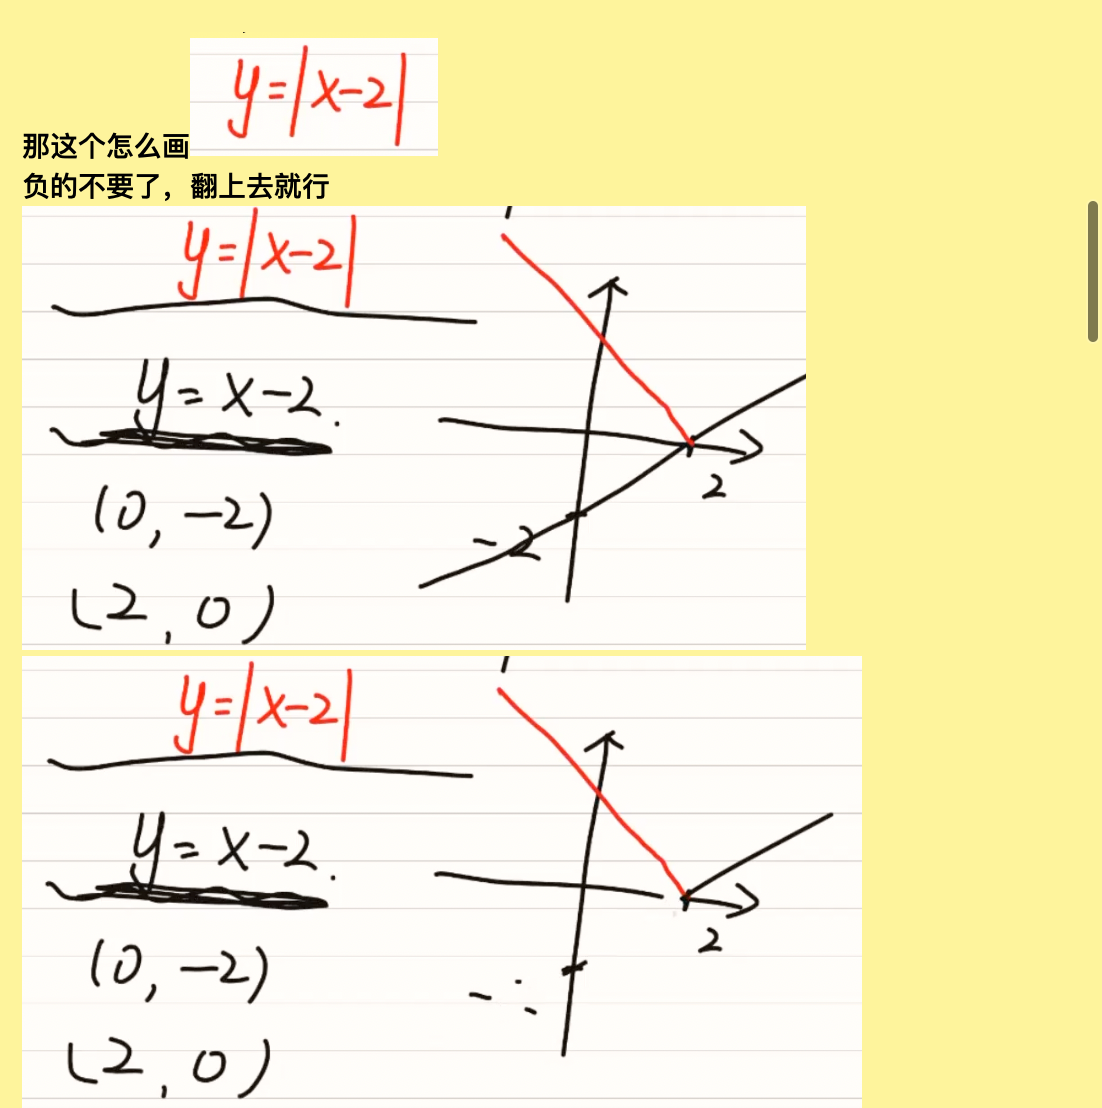 y=|x-2|
那这个怎么画
负的不要了，翻上去就行
y=|x-2|
y=x-2.
(0,-2)
-2
2
(2,0)
y=|x-2|
y=x-2.
(0,-2)
2
(2,0)